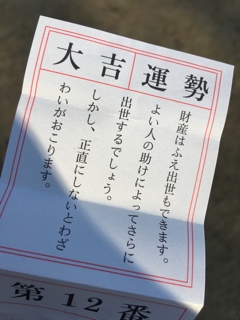 大吉運勢
財産はふえ出世もできます。
よい人の助けによってさらに
出世するでしょう。
しかし、正直にしないとわざ
わいがおこります。
第12番